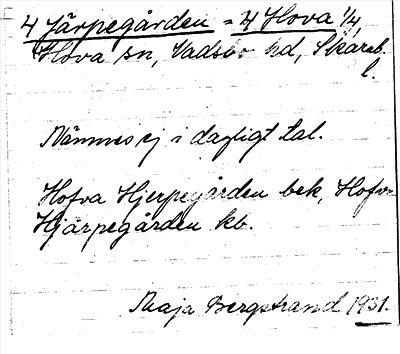 4 Järpegården = 4 Hova 1/4
Hova sn, Vadsbo hd, Skarab.
l.
Nämnes ej i dagligt tal.
Hofva Hjerpegården bek, Hofva
Hjärpegården kb.
Maja Bergstrand 1931.